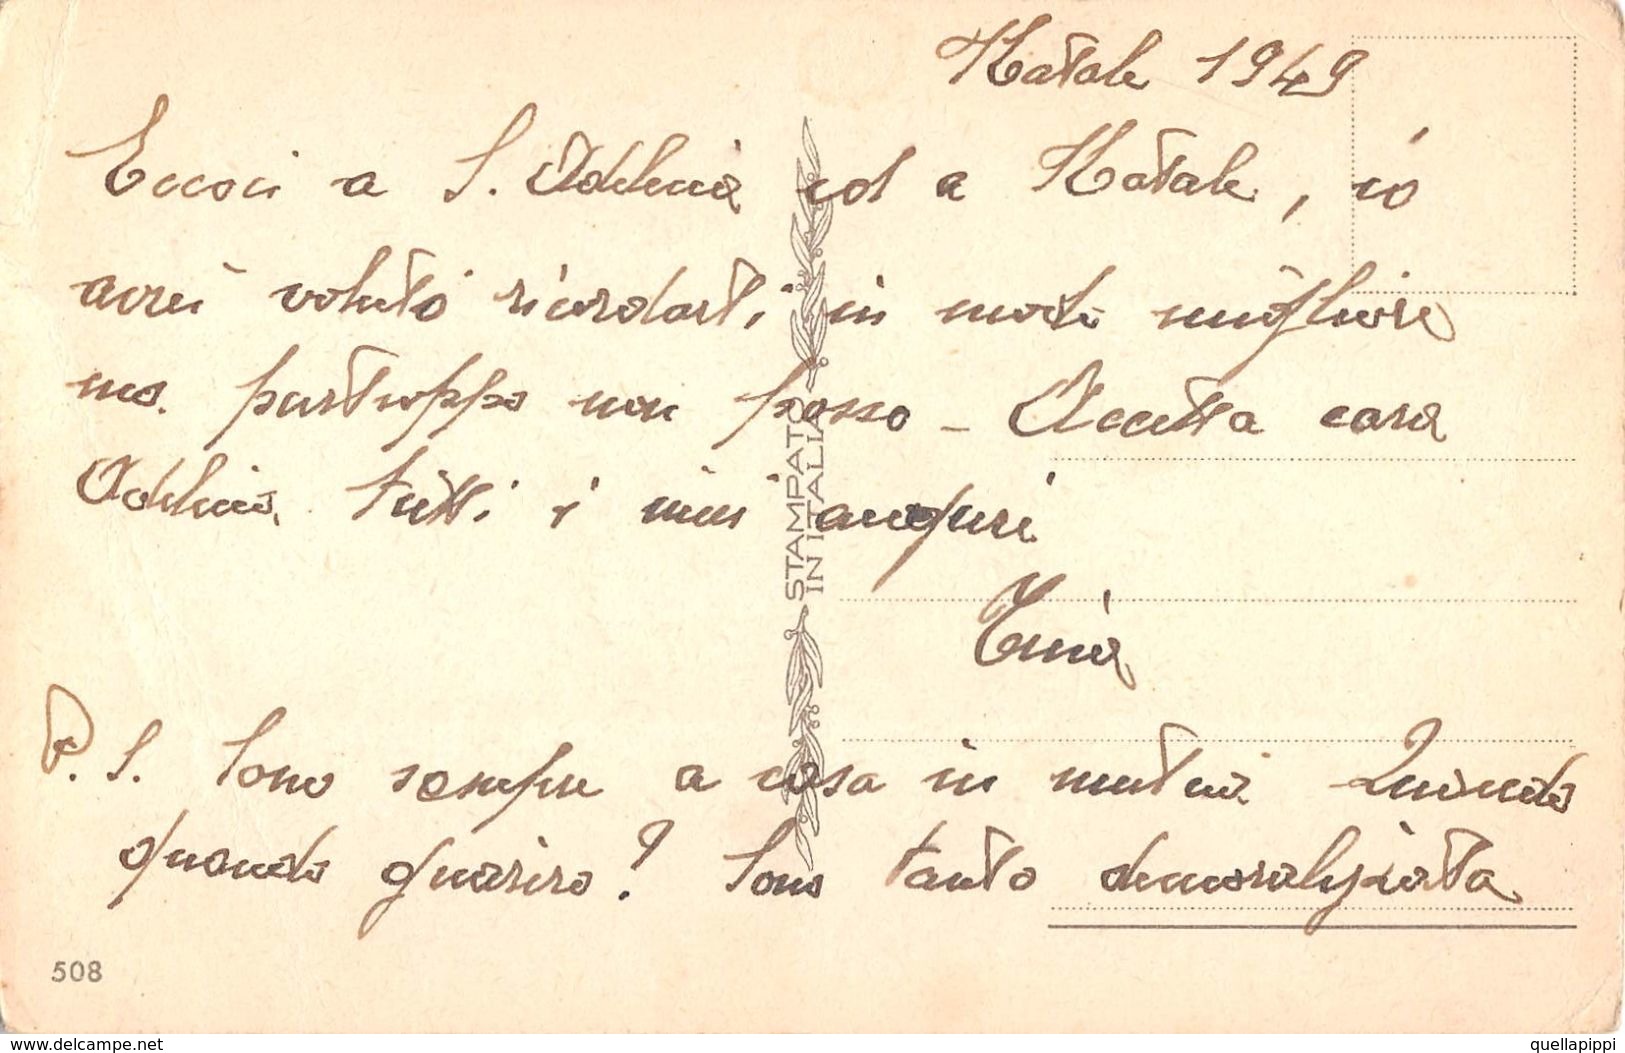 Natale 1949
Eccoci a S. Adelina ed a Natale, io
avrei voluto ricordarti in modo migliore
ma purtroppo non posso - Accetta cara
Adelina tutti i miei auguri
Tina
P.S. Sono sempre a casa in mutua. Quando
quando guariro? Sono tanto demoralizzata
STAMPATO
IN ITALIA
508
www.delcampe.net
quellapippi